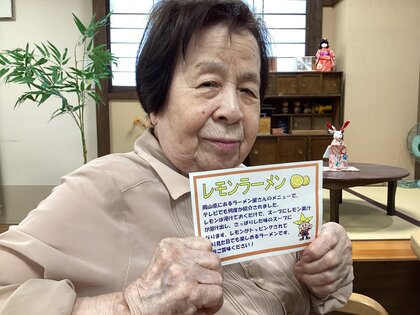 レモンラーメン
岡山県にあるラーメン屋さんのメニューで、
テレビでも何度か紹介されました。
レモンは漬けておくだけで、スープにレモン果汁
が溶け出し、さっぱりした味のスープに
なります。レモンがトッピングされて
見た目でも楽しめるラーメンです。
ご賞味ください！